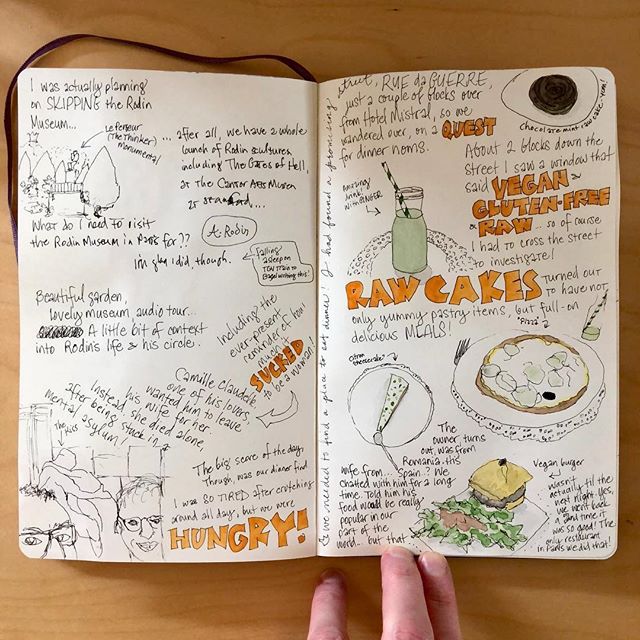 I was actually planning
on SKIPPING the Rodin
Museum...
Le Penseur
(The Thinker)
monumental
... after all, we have a whole
bunch of Rodin sculptures
including The Gates of Hell,
at the Cantor Arts Museum
at Stanford...
What do I need to visit
the Rodin Museum in Paris for??
A. Rodin
I'm glad I did, though.
Falling
asleep on
TGV train to
writing this!
Beautiful garden,
lovely museum audio tour...
A little bit of context
into Rodin's life & his circle.
Including the
ever-present
reminder of how
much it
SUCKED
to be a woman!
Camille Claudel,
one of his lovers,
wanted him to leave
his wife for her.
Instead she died alone,
after being stuck in a
mental asylum!
The kiss
The big score of the day,
though, was our dinner find
I was SO TIRED after
around all day, but we were
HUNGRY!
& we needed to find a place to eat dinner! I had found a promising
street, RUE da GUERRE,
just a couple of blocks over
from Hotel Mistral, so we
wandered over, on a QUEST
for dinner noms.
Chocolate mint raw cake, num!
About 2 blocks down the
street I saw a window that
said VEGAN &
GLUTEN-FREE
& RAW... so of course
I had to cross the street
to investigate!
Amazing
drink!
With GINGER
RAW CAKES turned out
to have not
only yummy pastry items, but full-on
delicious MEALS!
"Pizza"
Citron
cheesecake
The
owner, turns
out, was from
Romania, his
wife from... Spain? We
chatted with him for a long
time. Told him his
food would be really
popular in our
part of the
world... but that
Vegan burger
wasn't
actually 'til the
next night. Yes,
we went back
a 2nd time it
was so good! The
only restaurant
in Paris we did that!